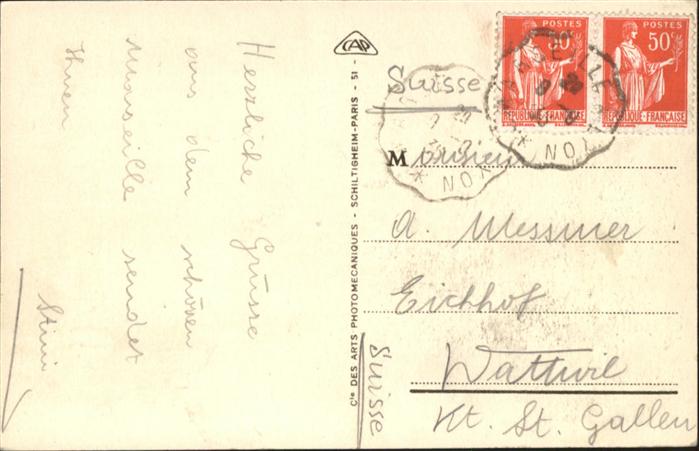 Herzliche Grüsse
aus dem schönen
Marseille sendet
Ihnen
Stini
CAP
Cie DES ARTS PHOTOMECANIQUES - SCHILTIGHEIM-PARIS - 51 -
POSTES
50c
REPUBLIQUE-FRANÇAISE
POSTES
50c
REPUBLIQUE-FRANÇAISE
MARSEILLE
LYON
LYON
Suisse
Monsieur
A. Messmer
Eichhof
Wattwil
Kt. St. Gallen
Suisse